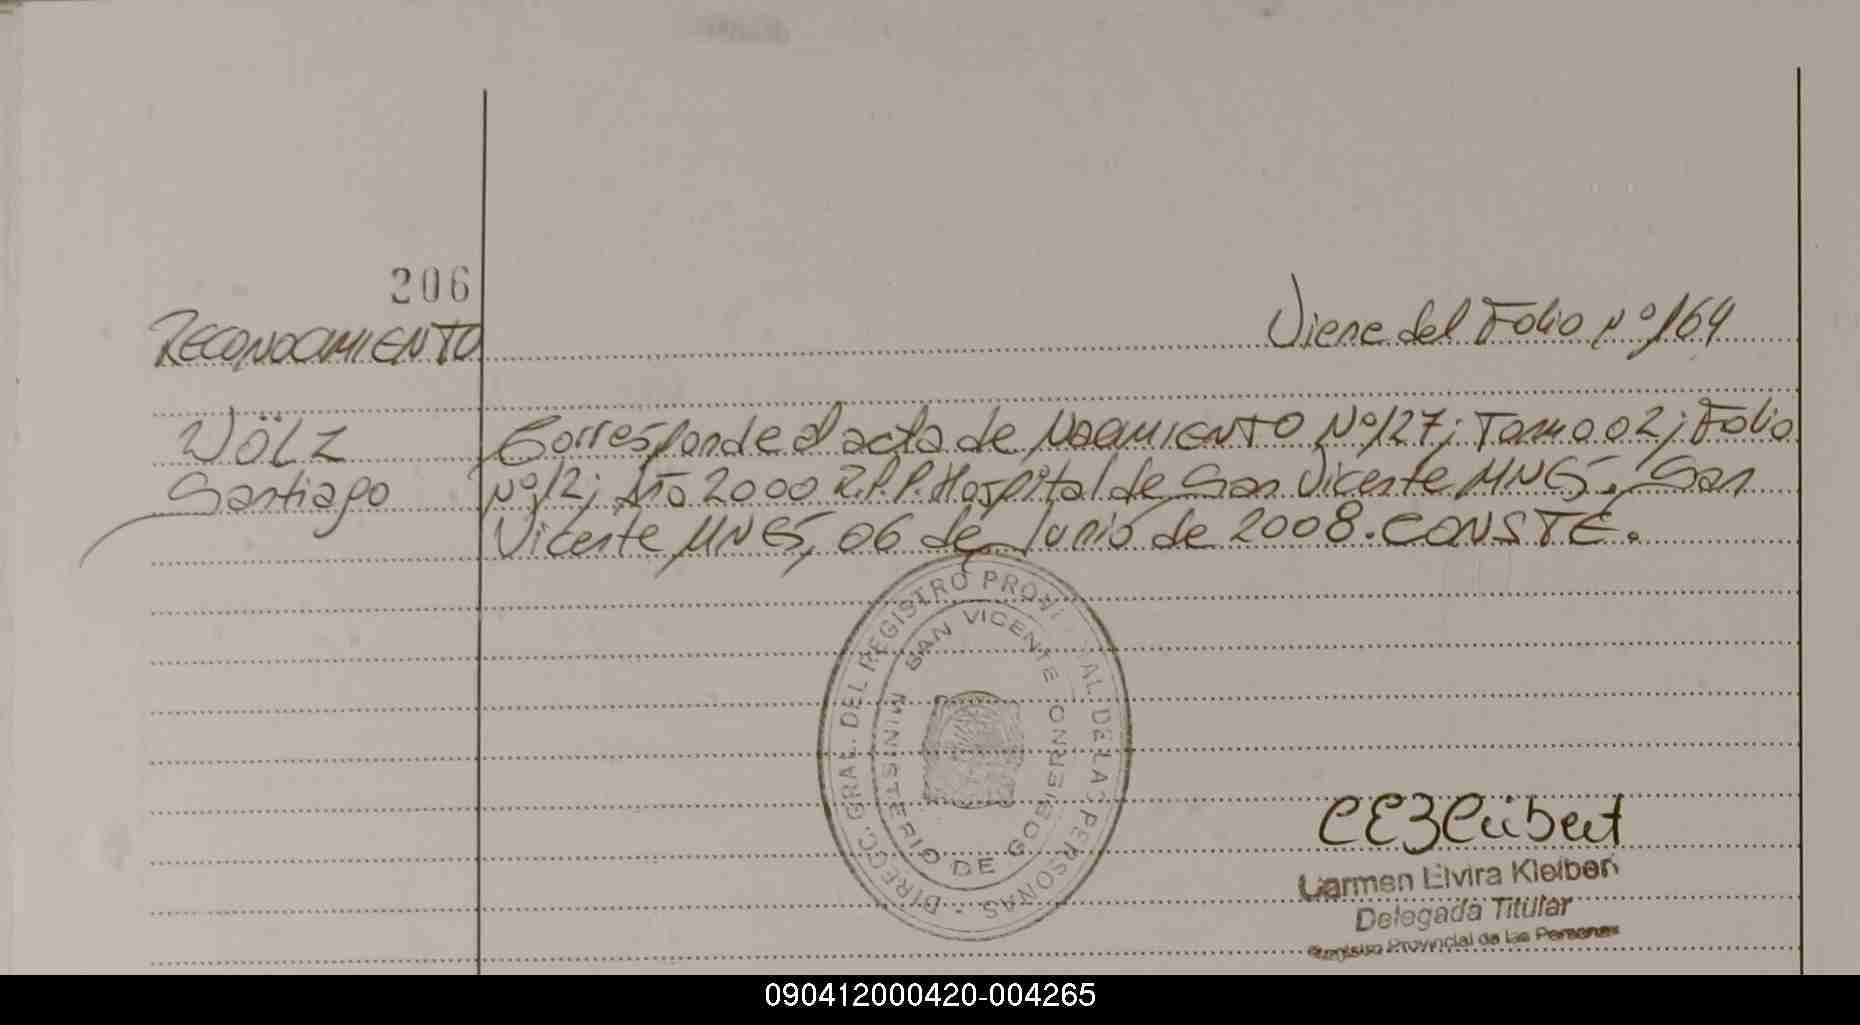 206
RECONOCIMIENTO
Viene del Folio Nº 164
WÖLZ
Santiago
Corresponde al acta de NACIMIENTO Nº 127; Tomo 02; Folio
Nº 12; Año 2000 R.P.P. Hospital de San Vicente MNES. San
Vicente MNES, 06 de Junio de 2008. CONSTE.
DIRECC. GRAL. DEL REGISTRO PROVI AL DE LAS PERSONAS
SAN VICENTE
MINISTERIO DE GOBIERNO
Carmen Elvira Kleibert
Delegada Titular
Registro Provincial de las Personas
090412000420-004265